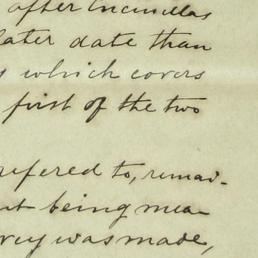 after Encinillas
later date than
s which covers
first of the two
refered to, remai-
nt being mea-
rvey was made,